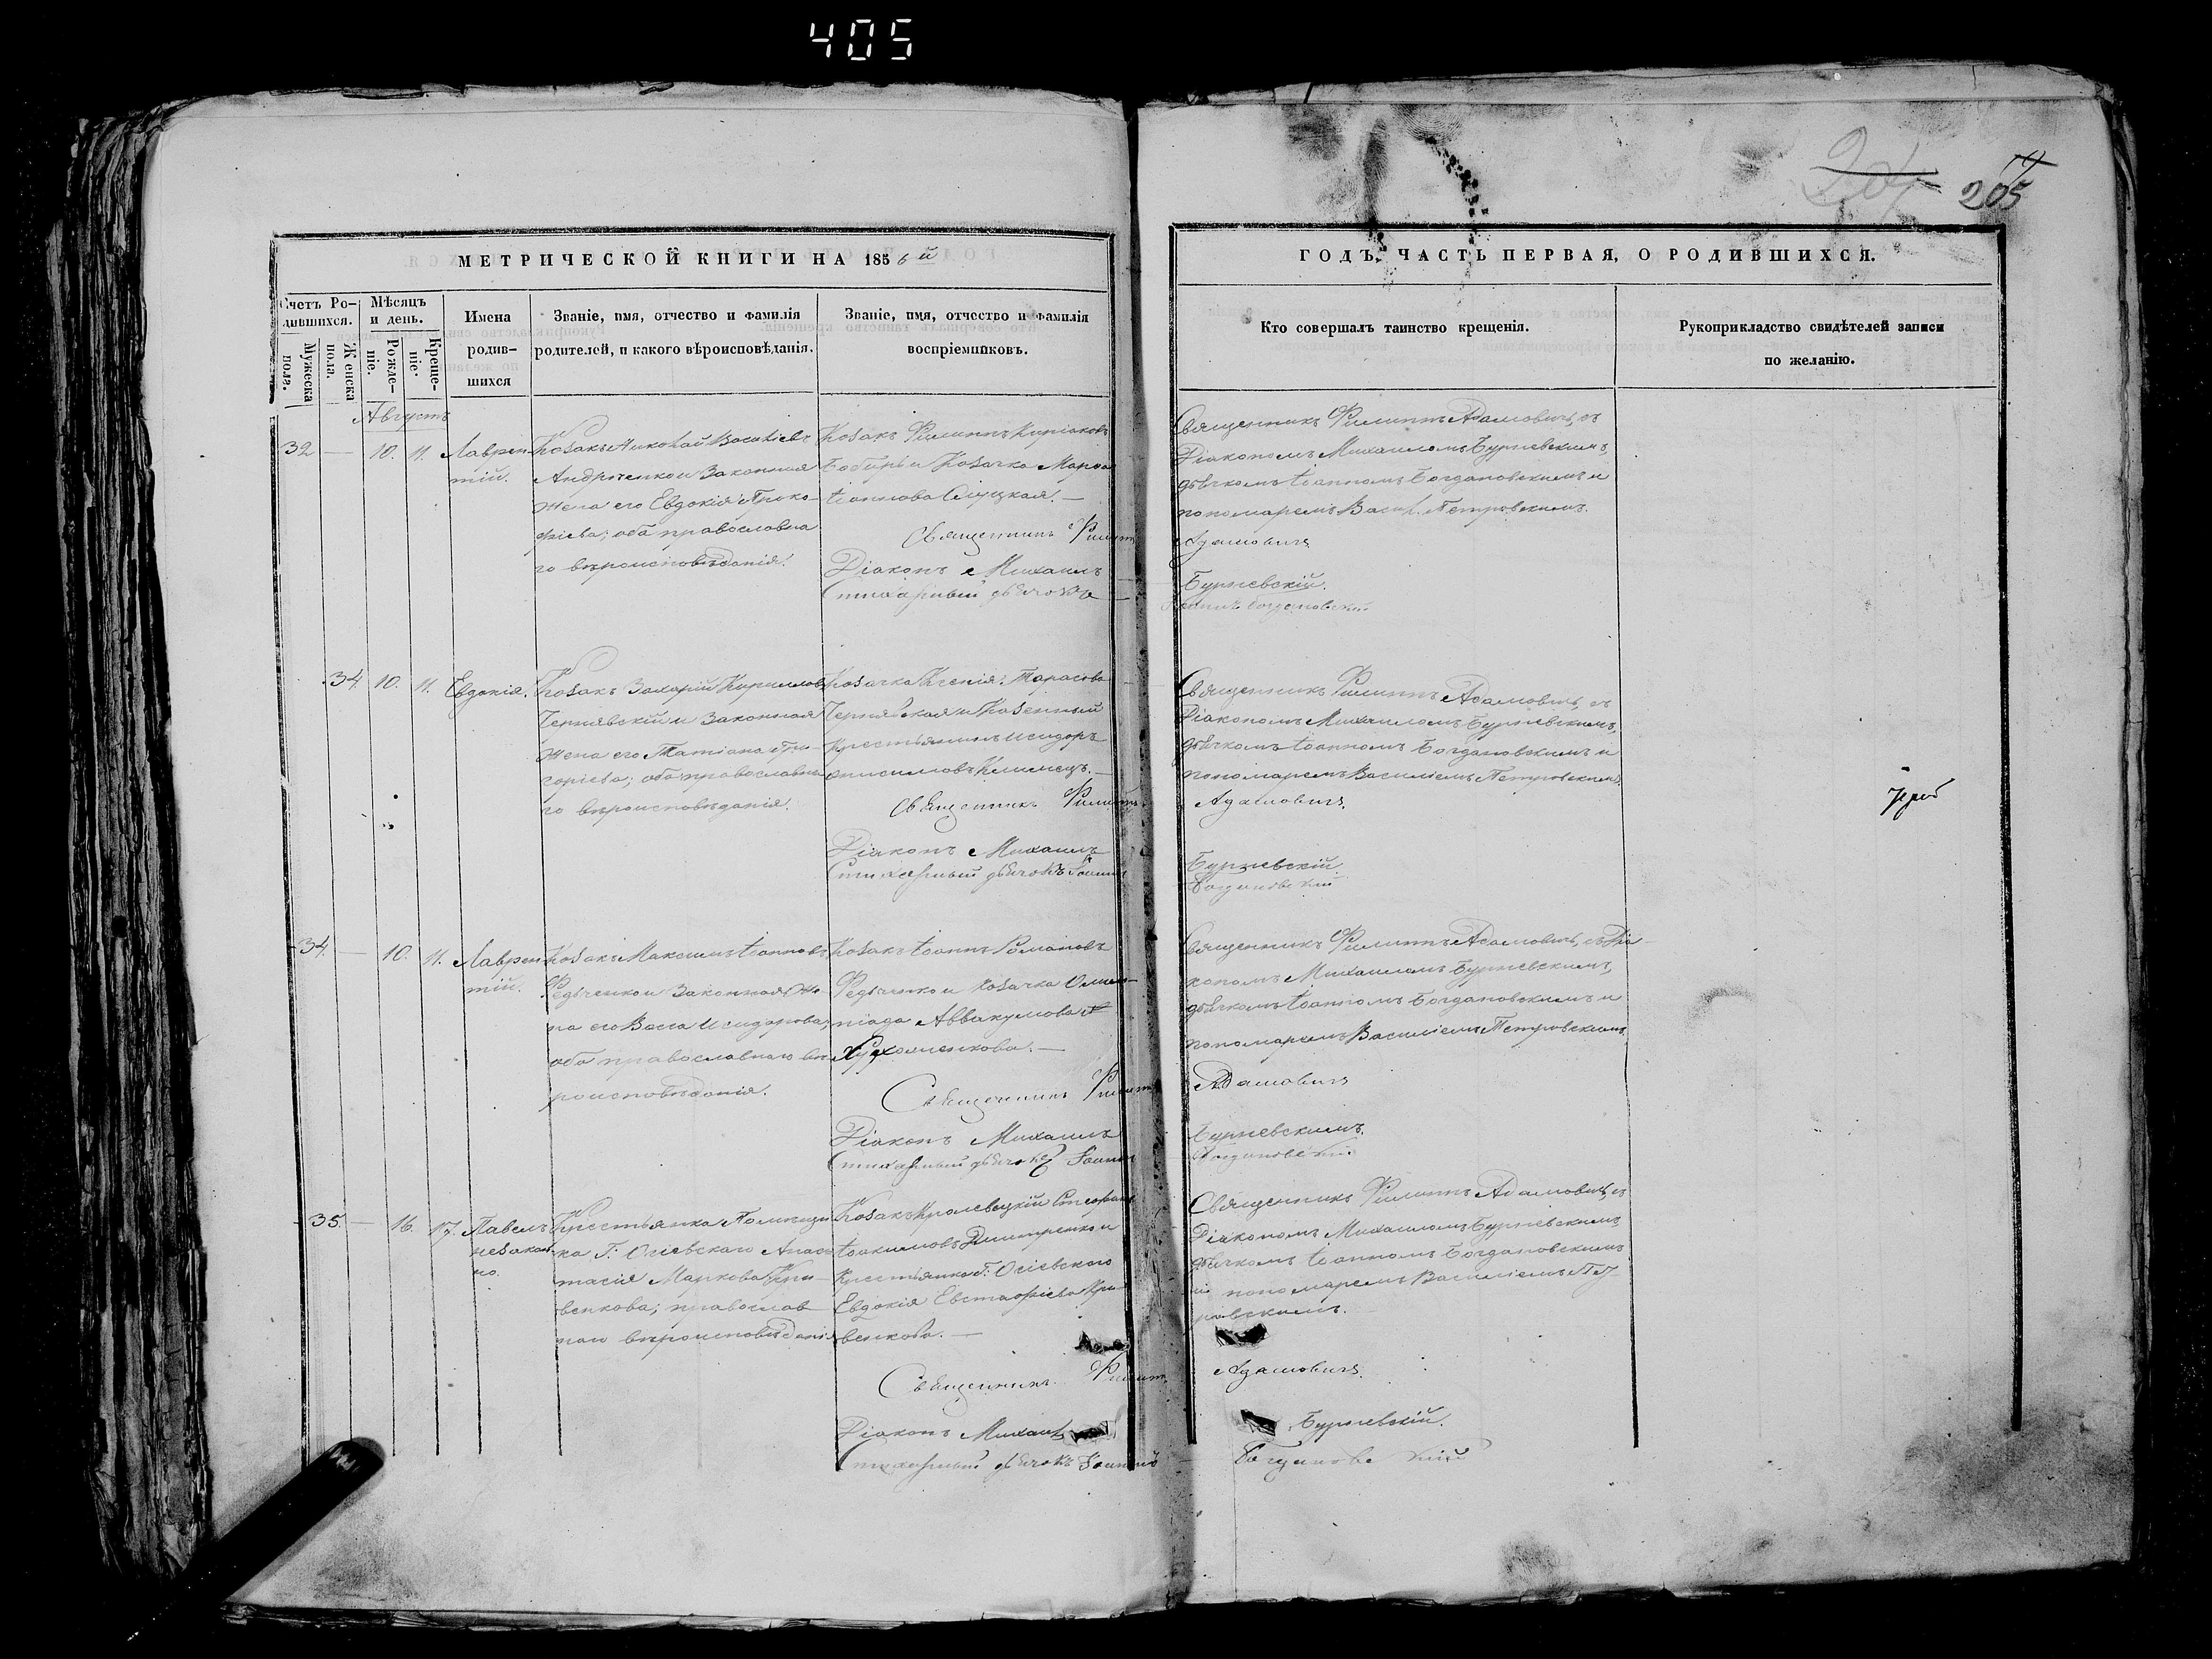 405
205
МЕТРИЧЕСКОЙ КНИГИ НА 1856й
Счетъ Ро-
дившихся.
Мужеска
пола.
Женска
пола.
Мѣсяцъ
и день.
Рожде-
ніе.
Креще-
ніе.
Имена
родив-
шихся
Званіе, имя, отчество и фамилія
родителей, и какого вѣроисповѣданія.
Званіе, имя, отчество и фамилія
воспріемниковъ.
ГОДЪ, ЧАСТЬ ПЕРВАЯ, О РОДИВШИХСЯ.
Кто совершалъ таинство крещенія.
Рукоприкладство свидѣтелей записи
по желанію.
Августъ
32 — 10. 11.
Лаврен
тій.
Козакъ Николай Василіевъ
Андрченко и Законная
жена его Евдокія Проко-
фіева; оба православна
го вѣроисповѣданія.
Козакъ Филиппъ Киріаковъ
Бобырь и Козачка Марѳа
Іоаннова Слуцкая. —
Священникъ Филиппъ
Діаконъ Михаилъ
Стихарный дьячокъ
Священникъ Филиппъ Адамовичъ, съ
Діакономъ Михаиломъ Бурчевскимъ,
дьячкомъ Іоанномъ Богдановскимъ и
пономаремъ Васил. Петровскимъ.
Адамовичъ
Бурчевскій.
Іоаннъ Богдановскій
34. 10. 11.
Евдокія.
Козакъ Захарій Кирилловъ
Чернявскій и Законная
жена его Татіана Гри-
горіева; оба православна
го вѣроисповѣданія.
Козачка Ксенія Тарасова
Чернявская и Казенный
Крестьянинъ Исидоръ
Онисимовъ Климецъ. —
Священникъ Филиппъ
Діаконъ Михаилъ
Стихарный дьячокъ Іоаннъ
Священникъ Филиппъ Адамовичъ, съ
Діакономъ Михаиломъ Бурчевскимъ,
дьячкомъ Іоанномъ Богдановскимъ и
пономаремъ Василіемъ Петровскимъ.
Адамовичъ.
Бурчевскій.
Богдановскій
34. — 10. 11.
Лаврен
тій.
Козакъ Максимъ Іоанновъ
Федченко и Законная Же-
на его Васса Исидорова;
оба православнаго вѣ-
роисповѣданія.
Козакъ Іоаннъ Романовъ
Федченко и Козачка Олим-
піада Аввакумова
Худоменкова. —
Священникъ Филиппъ
Діаконъ Михаилъ
Стихарный дьячокъ Іоаннъ
Священникъ Филиппъ Адамовичъ, съ Діа-
кономъ Михаиломъ Бурчевскимъ,
дьячкомъ Іоанномъ Богдановскимъ и
пономаремъ Василіемъ Петровскимъ.
Адамовичъ
Бурчевскимъ.
Богдановскій
35. — 16. 17.
Павелъ
незакон-
но.
Крестьянка Помѣщи
ка Г: Огіевскаго Анас-
тасія Маркова Кри-
венкова; православ-
наго вѣроисповѣданія
Козакъ Кролевецкій Стефанъ
Іоакимовъ Дмитренко и
Крестьянка Г: Огіевскаго
Евдокія Евстафіева Кри-
венкова. —
Священникъ Филиппъ
Діаконъ Михаилъ
Стихарный дьячокъ Іоаннъ
Священникъ Филиппъ Адамовичъ, съ
Діакономъ Михаиломъ Бурчевскимъ,
дьячкомъ Іоанномъ Богдановскимъ
и пономаремъ Василіемъ Пет-
ровскимъ.
Адамовичъ.
Бурчевскій.
Богдановскій